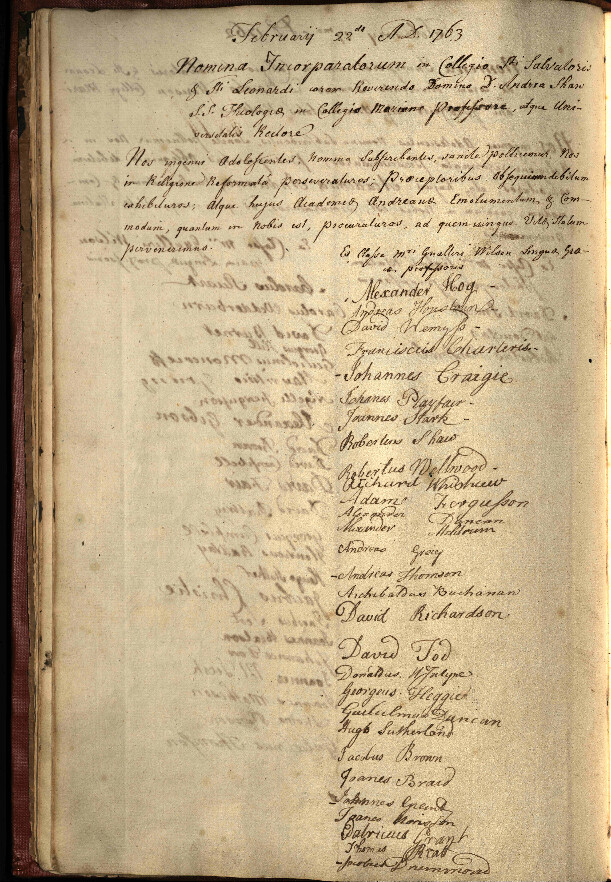 Februarij 22do A.D. 1763
Nomina Incorporatorum in Collegio Sti Salvatoris
& Sti Leonardi coram Reverendo Domino D. Andrea Shaw
S.S. Theologiæ in Collegio Mariano Professore, atque Uni-
versitatis Rectore
Nos ingenui Adolescentes, nomina Subscribentes, sancte pollicemur Nos
in Religione Reformatâ perseveraturos; Præceptoribus obsequium debitum
exhibituros; Atque hujus Academiæ Andreanæ Emolumentum & Com-
modum, quantum in nobis est, procuraturos, ad quemcunque Vitæ Statum
pervenerimus.
Ex Classe mri Gualteri Wilson Linguæ Græ-
cæ professoris
Alexander Hog
Andreas
David Wemyss
Franciscus Charteris
Johannes Craigie
Johanes Playfair
Joannes Stark
Robertus Shaw
Robertus Wellwood
Richard
Adam Fergusson
Alexander Duncan
Alexander Meldrum
Andreas Gray
Andreas Thomson
Archibaldus Buchanan
David Richardson
David Tod
Donaldus
Georgeus Heggie
Gulielmus Duncan
Hugh Sutherland
Jacobus Brown
Joanes Braid
Johannes
Joanes
Patricius Grant
Thomas
Jacobus Drummond